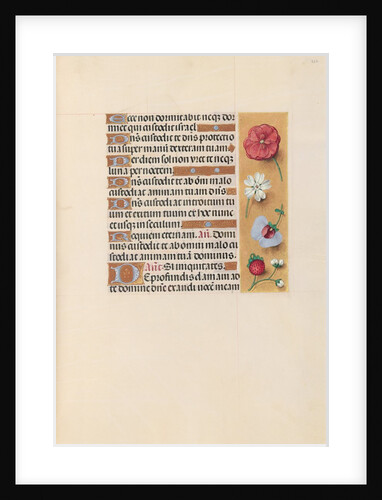 Ecce non dormitabit neqz dor
miet qui custodit israel.
Dñs custodit te dñs protectio
tua super manũ dexteram tuam
Per diem sol non vret te neqz
luna per noctem.
Dñs custodit te ab õm malo
custodiat animam tuam dñs
Dñs custodiat introitum tu
um et exitum tuum ex hoc nunc
et usqz in seculum.
Requiem eternam. añ. Domi
nus custodit te ab omni malo cu
stodiat animam tuã dominus.
añe. Si iniquitates.
De profundis clamaui ad
te domine dñe exaudi uocẽ meam